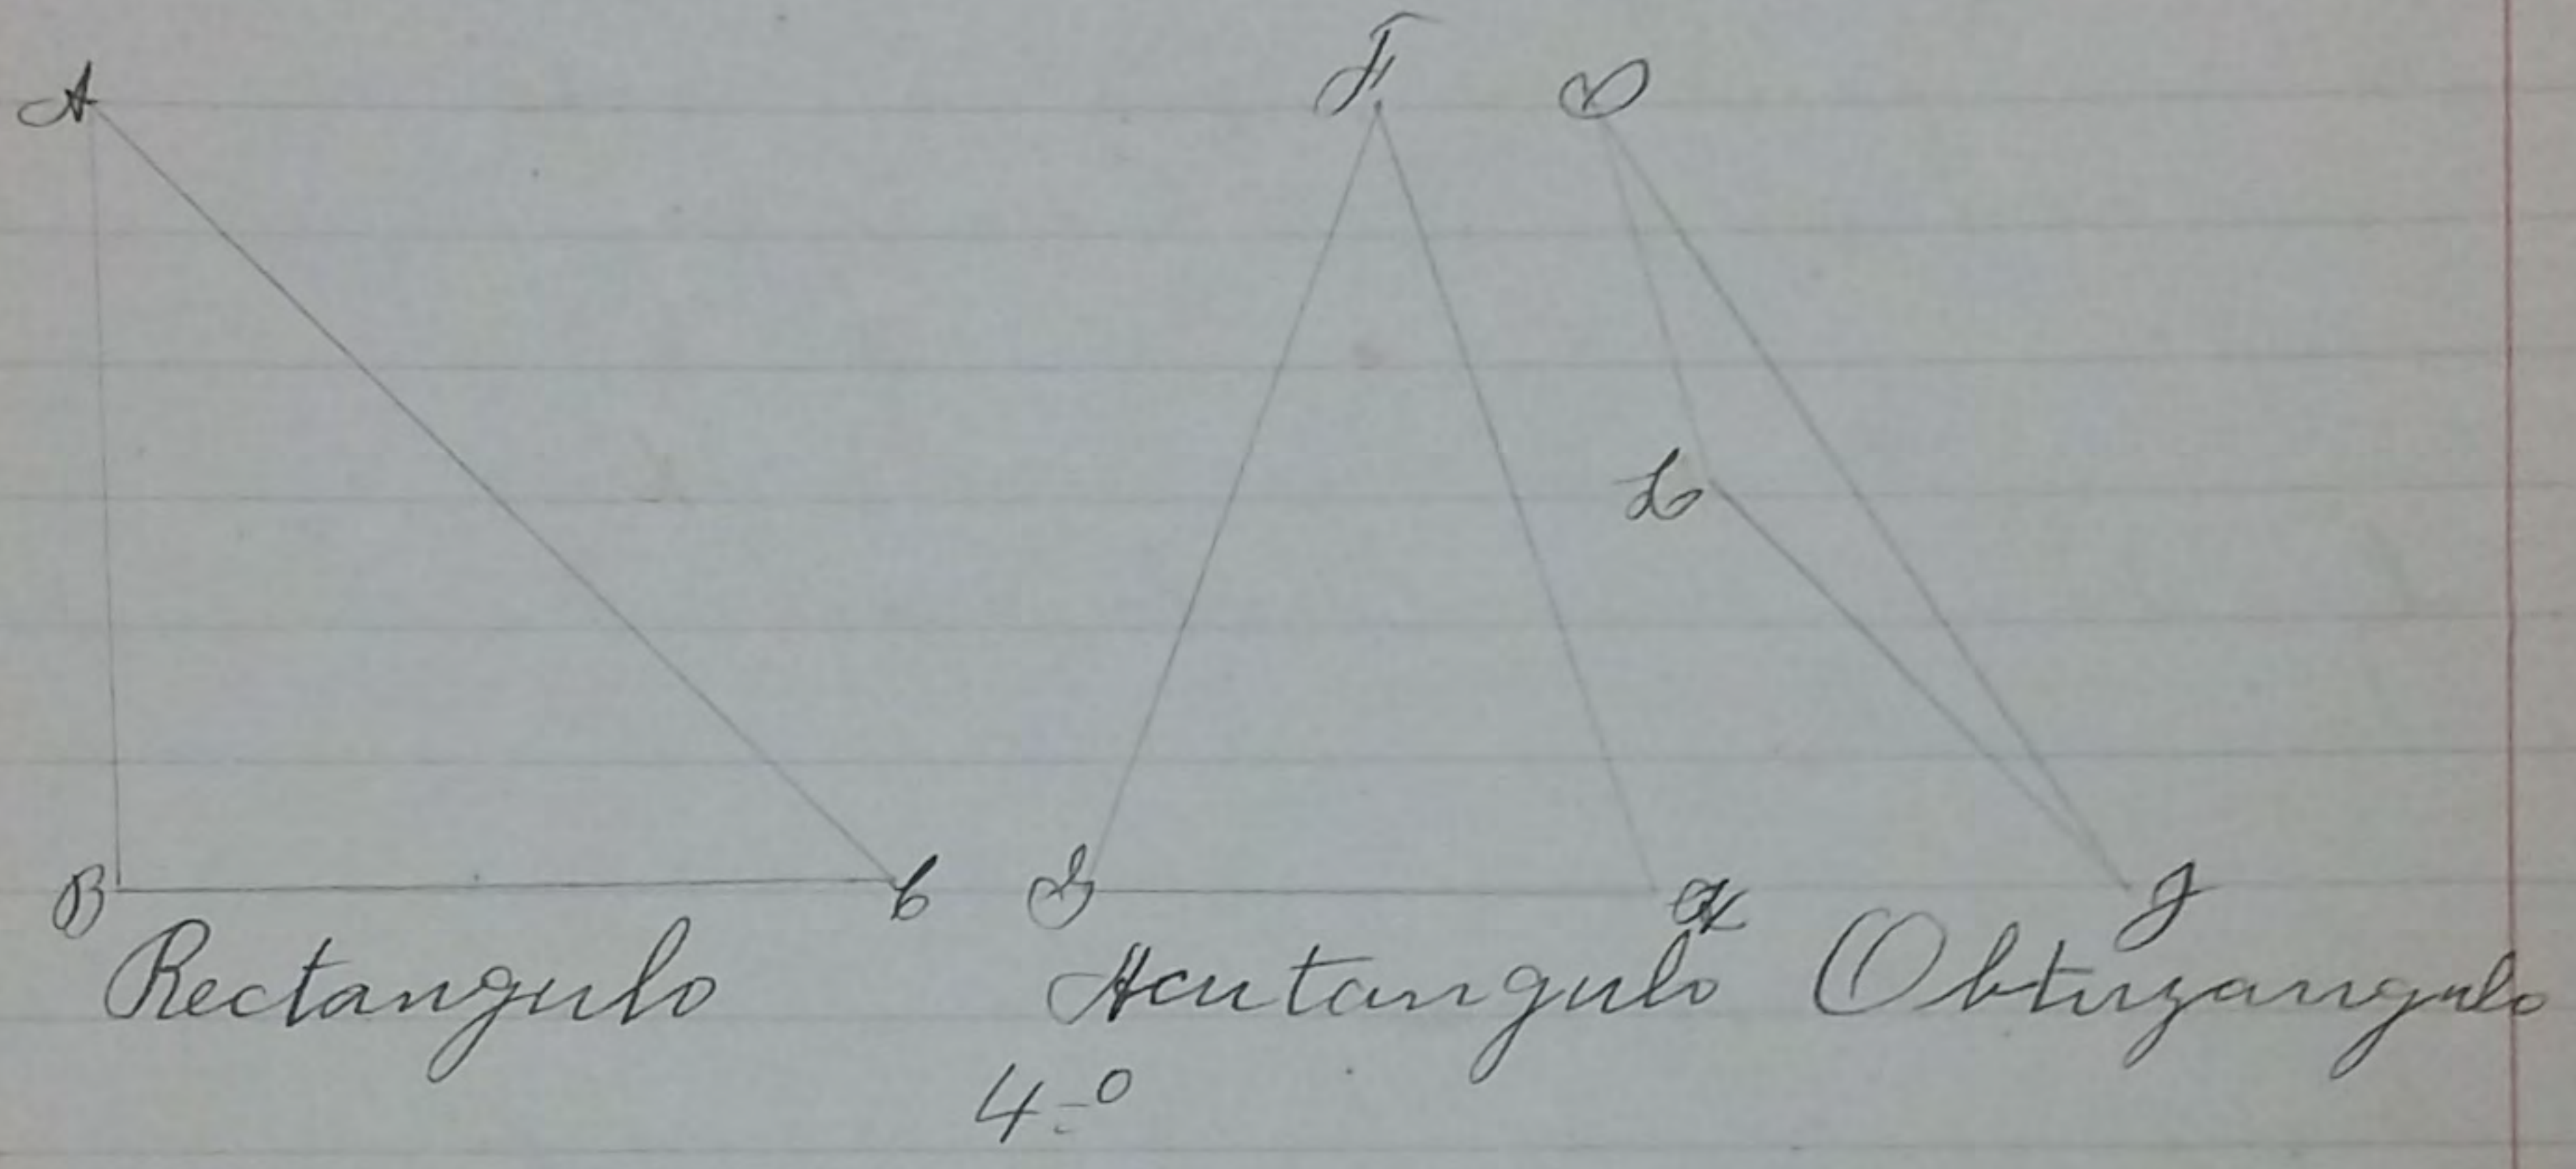 A F D
L
B C S X J
Rectangulo Acutangulo Obtuzangulo
4-º